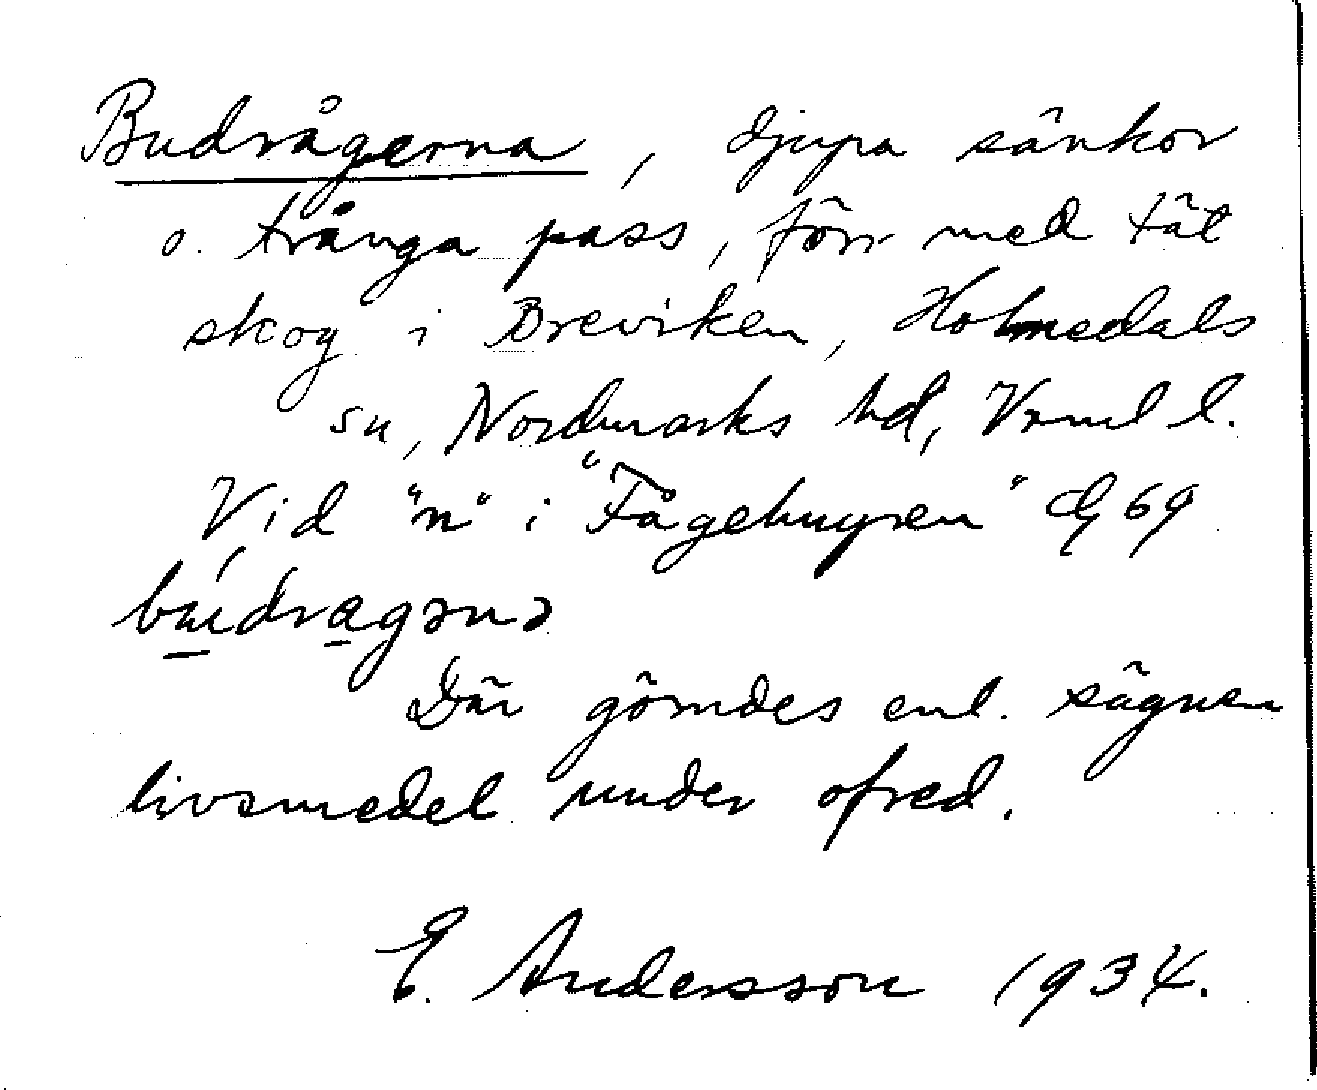 Budrågerna, djupa sänkor
o. trånga pass, förr med tät
skog i Breviken, Holmedals
sn, Nordmarks hd, Vrml l.
Vid "n" i "Fågehuyren" G 69
Där gömdes enl. sägnen
livsmedel under ofred.
E. Andersson 1934.